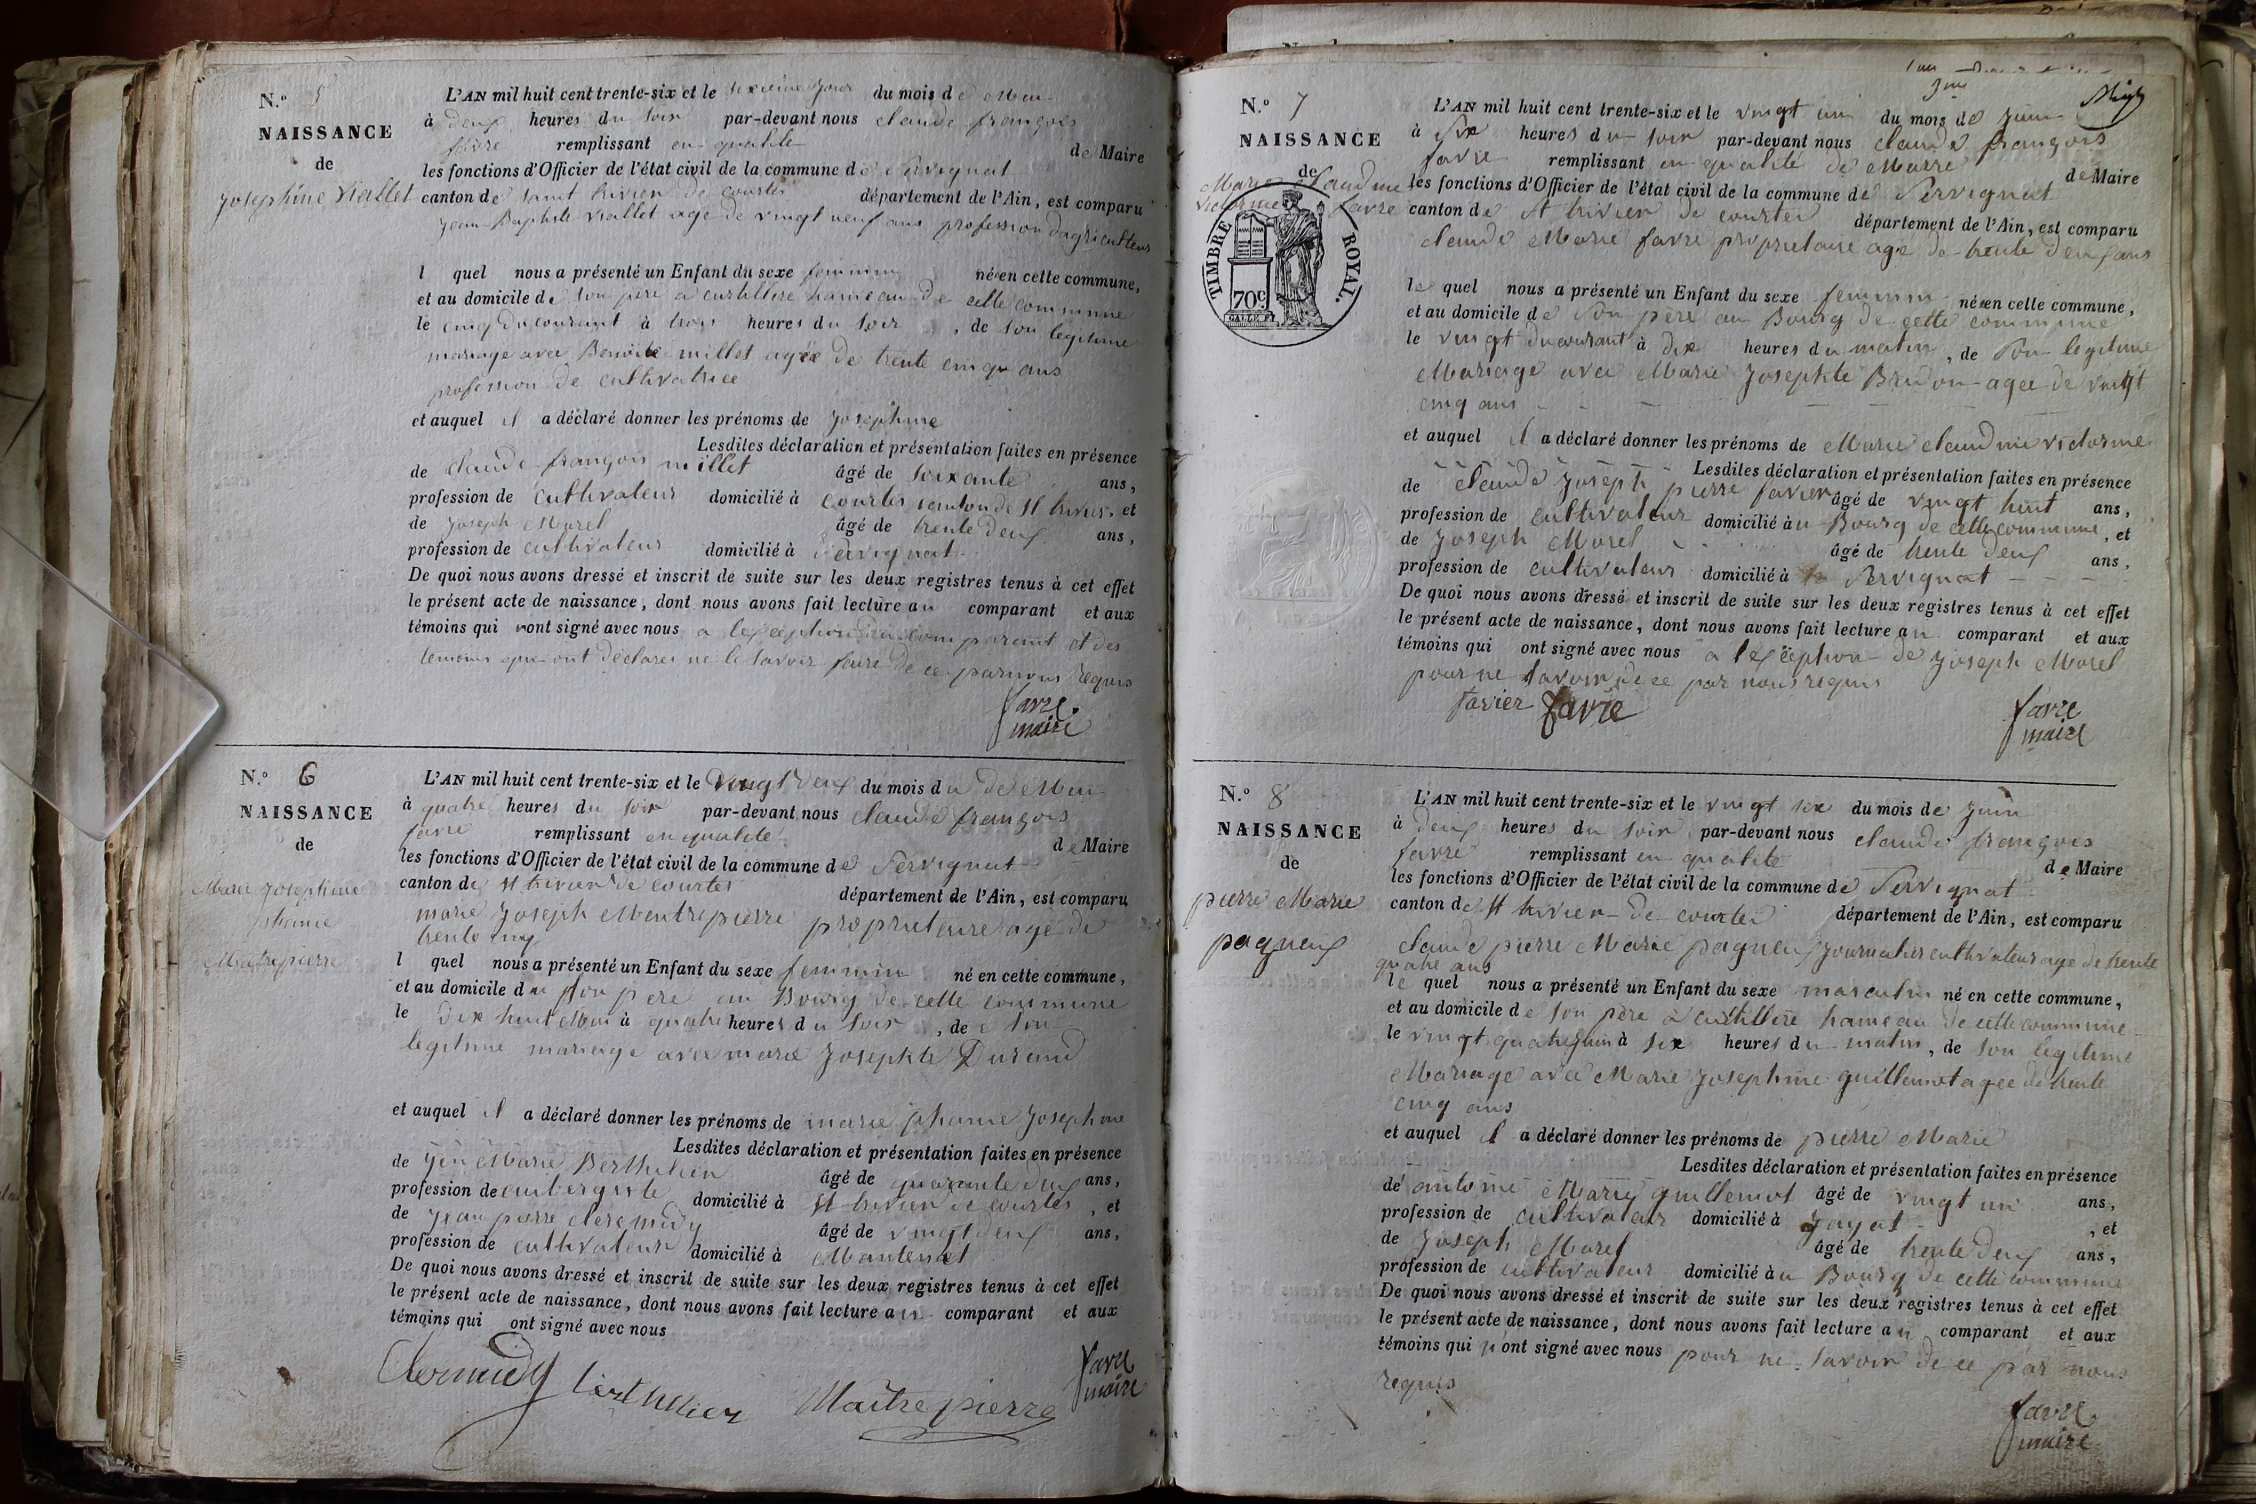 N.° 5
NAISSANCE
de
Josephine Viallet
L'AN mil huit cent trente-six et le sixième jour du mois de Mai
à deux heures du soir par-devant nous claude françois
favre remplissant en qualité de Maire
les fonctions d'Officier de l'état civil de la commune de Servignat
canton de saint trivier de courtes département de l'Ain, est comparu
jean Baptiste viallet age de vingt neuf ans profession dagriculteur
l quel nous a présenté un Enfant du sexe feminin né en cette commune,
et au domicile de son père a curtillere hameau de cette commune
le cinq du courant à trois heures du soir, de son légitime
mariage avec Benoite millet agée de trente cinq ans
profession de cultivatrice
et auquel il a déclaré donner les prénoms de Josephine
Lesdites déclaration et présentation faites en présence
de claude françois millet âgé de soixante ans,
profession de cultivateur domicilié à courtes canton de st trivier, et
de joseph Morel âgé de trente deux ans,
profession de cultivateur domicilié à servignat
De quoi nous avons dressé et inscrit de suite sur les deux registres tenus à cet effet
le présent acte de naissance, dont nous avons fait lecture au comparant et aux
témoins qui ont signé avec nous a lexception du comparant et des
temoins qui ont déclarer ne le savoir faire de ce par nous requis
favre
maire
N.° 6
NAISSANCE
de
Marie Josephine
phanie
Maitrepierre
L'AN mil huit cent trente-six et le vingt deux du mois du de Mai
à quatre heures du soir par-devant nous claude françois
favre remplissant en qualité de Maire
les fonctions d'Officier de l'état civil de la commune de Servignat
canton de st trivier de courtes département de l'Ain, est comparu
marie Joseph Mentrepierre proprietaire age de
trente cinq
l quel nous a présenté un Enfant du sexe feminin né en cette commune,
et au domicile du son père au Bourg de cette commune
le dix huit Mai à quatre heures du soir, de son
legitime mariage avec marie Josephte Durand
et auquel il a déclaré donner les prénoms de marie phanie Josephine
Lesdites déclaration et présentation faites en présence
de Marie Berthelier âgé de quarante deux ans,
profession de aubergiste domicilié à st trivier de courtes, et
de jean pierre clermidy âgé de vingt deux ans,
profession de cultivateur domicilié à Mantenat
De quoi nous avons dressé et inscrit de suite sur les deux registres tenus à cet effet
le présent acte de naissance, dont nous avons fait lecture au comparant et aux
témoins qui ont signé avec nous
Clermidy berthelier Maitrepierre favre
maire
N.° 7
NAISSANCE
de
Marie Claudine
victorine favre
TIMBRE ROYAL.
70c
L'AN mil huit cent trente-six et le vingt un du mois de juin
à six heures du soir par-devant nous claude françois
favre remplissant en qualité de Marre de Maire
les fonctions d'Officier de l'état civil de la commune de Servignat
canton de st trivier de courtes département de l'Ain, est comparu
claude Marie favre proprietaire age de trente deux ans
le quel nous a présenté un Enfant du sexe feminin né en cette commune,
et au domicile de son père au Bourg de cette commune
le vingt du courant à dix heures du matin, de son legitime
Mariage avec Marie Josephte Brudon agee de vingt
cinq ans
et auquel il a déclaré donner les prénoms de Marie claudine victorine
Lesdites déclaration et présentation faites en présence
de claude Joseph pierre favier âgé de vingt huit ans,
profession de cultivateur domicilié au Bourg de cette commune, et
de Joseph Morel âgé de trente deux ans,
profession de cultivateur domicilié à Servignat
De quoi nous avons dressé et inscrit de suite sur les deux registres tenus à cet effet
le présent acte de naissance, dont nous avons fait lecture au comparant et aux
témoins qui ont signé avec nous a lexception de joseph Morel
pour ne savoir de ce par nous requis
favier favre favre
maire
N.° 8
NAISSANCE
de
pierre Marie
pagneux
L'AN mil huit cent trente-six et le vingt six du mois de juin
à deux heures du soir par-devant nous claude françois
favre remplissant en qualité de Maire
les fonctions d'Officier de l'état civil de la commune de Servignat
canton de st trivier de courtes département de l'Ain, est comparu
claude pierre Marie pagneux journalier cultivateur age de trente
quatre ans
le quel nous a présenté un Enfant du sexe masculin né en cette commune,
et au domicile de son père à curtillere hameau de cette commune
le vingt quatre juin à six heures du matin, de son légitime
Mariage avec Marie Josephine guillemot agee de trente
cinq ans
et auquel il a déclaré donner les prénoms de pierre Marie
Lesdites déclaration et présentation faites en présence
de antoine Marie guillemot âgé de vingt un ans,
profession de cultivateur domicilié à jayat, et
de Joseph Morel âgé de trente deux ans,
profession de cultivateur domicilié au Bourg de cette commune
De quoi nous avons dressé et inscrit de suite sur les deux registres tenus à cet effet
le présent acte de naissance, dont nous avons fait lecture au comparant et aux
témoins qui n'ont signé avec nous pour ne savoir de ce par nous
requis
favre
maire